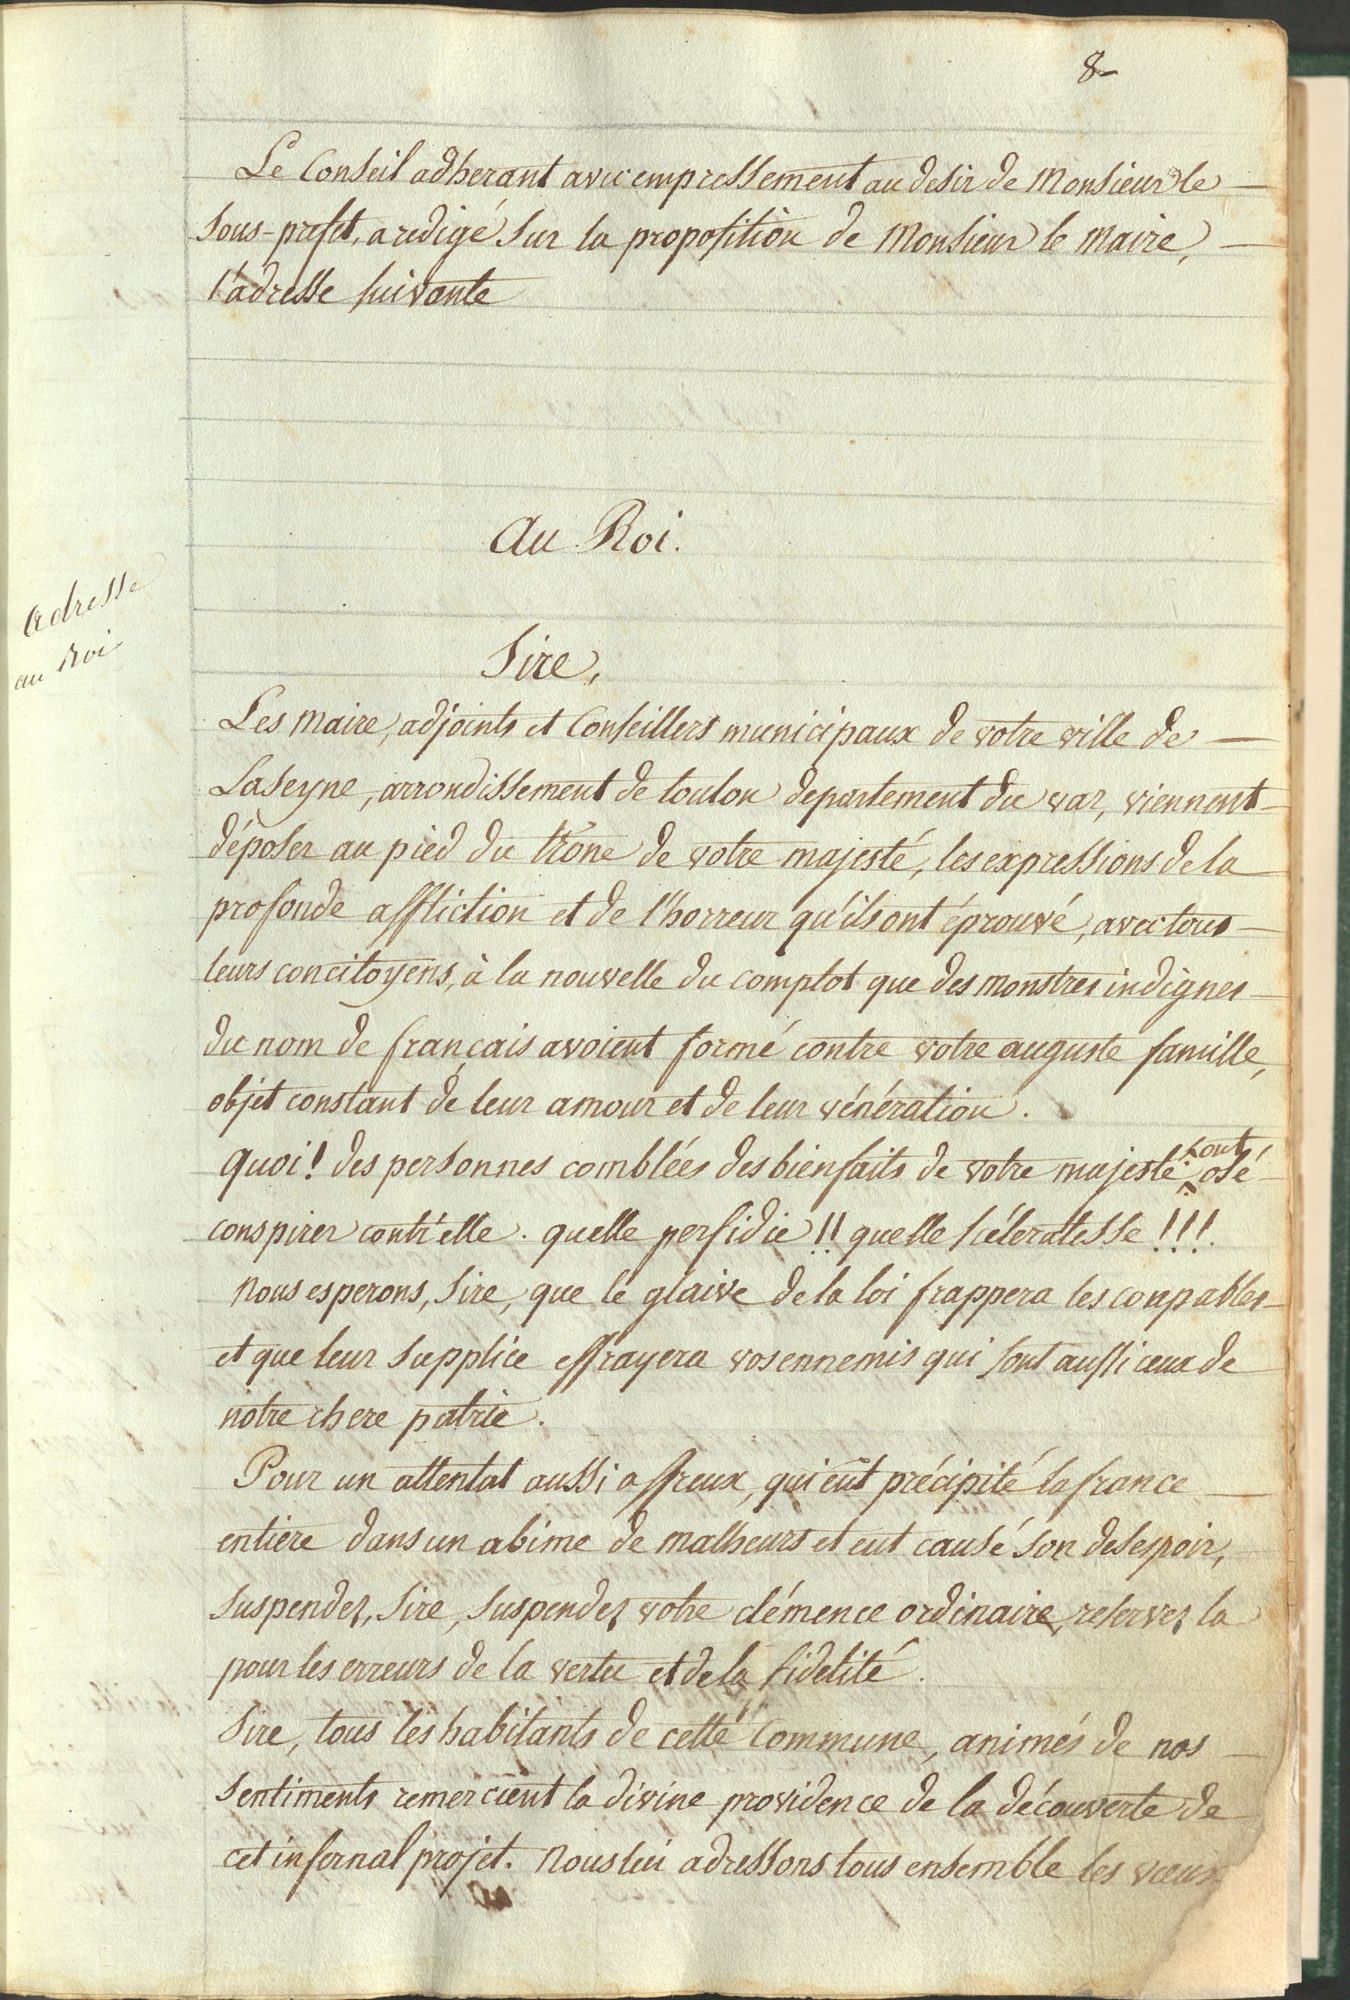 8
Le Conseil adherant avec empressement au desir de Monsieur le
sous-prefet, a redigé sur la proposition de Monsieur le maire,
l'adresse suivante
Au Roi.
adresse
au Roi
Sire,
Les maire, adjoints et Conseillers municipaux de votre ville de
Laseyne, arrondissement de toulon departement du var, viennent
déposer au pied du trône de votre majesté, les expressions de la
profonde affliction et de l'horreur qu'ils ont éprouvé, avec tous
leurs concitoyens, à la nouvelle du complot que des monstres indignes
du nom de français avoient formé contre votre auguste famille,
objet constant de leur amour et de leur vénération.
quoi! des personnes comblées des bienfaits de votre majesté ont osé
conspirer contr'elle. quelle perfidie!! quelle scéleratesse!!!
nous esperons, Sire, que le glaive de la loi frappera les coupables
et que leur supplice effrayera vos ennemis qui sont aussi ceux de
notre chere patrie.
Pour un attentat aussi affreux, qui eût précipité la france
entiere dans un abime de malheurs et eut causé son desespoir,
suspendez, Sire, suspendez votre clémence ordinaire, reservez la
pour les erreurs de la vertu et de la fidelité.
Sire, tous les habitants de cette Commune, animés de nos
sentiments remercient la divine providence de la découverte de
cet infernal projet. nous lui adressons tous ensemble les vœux